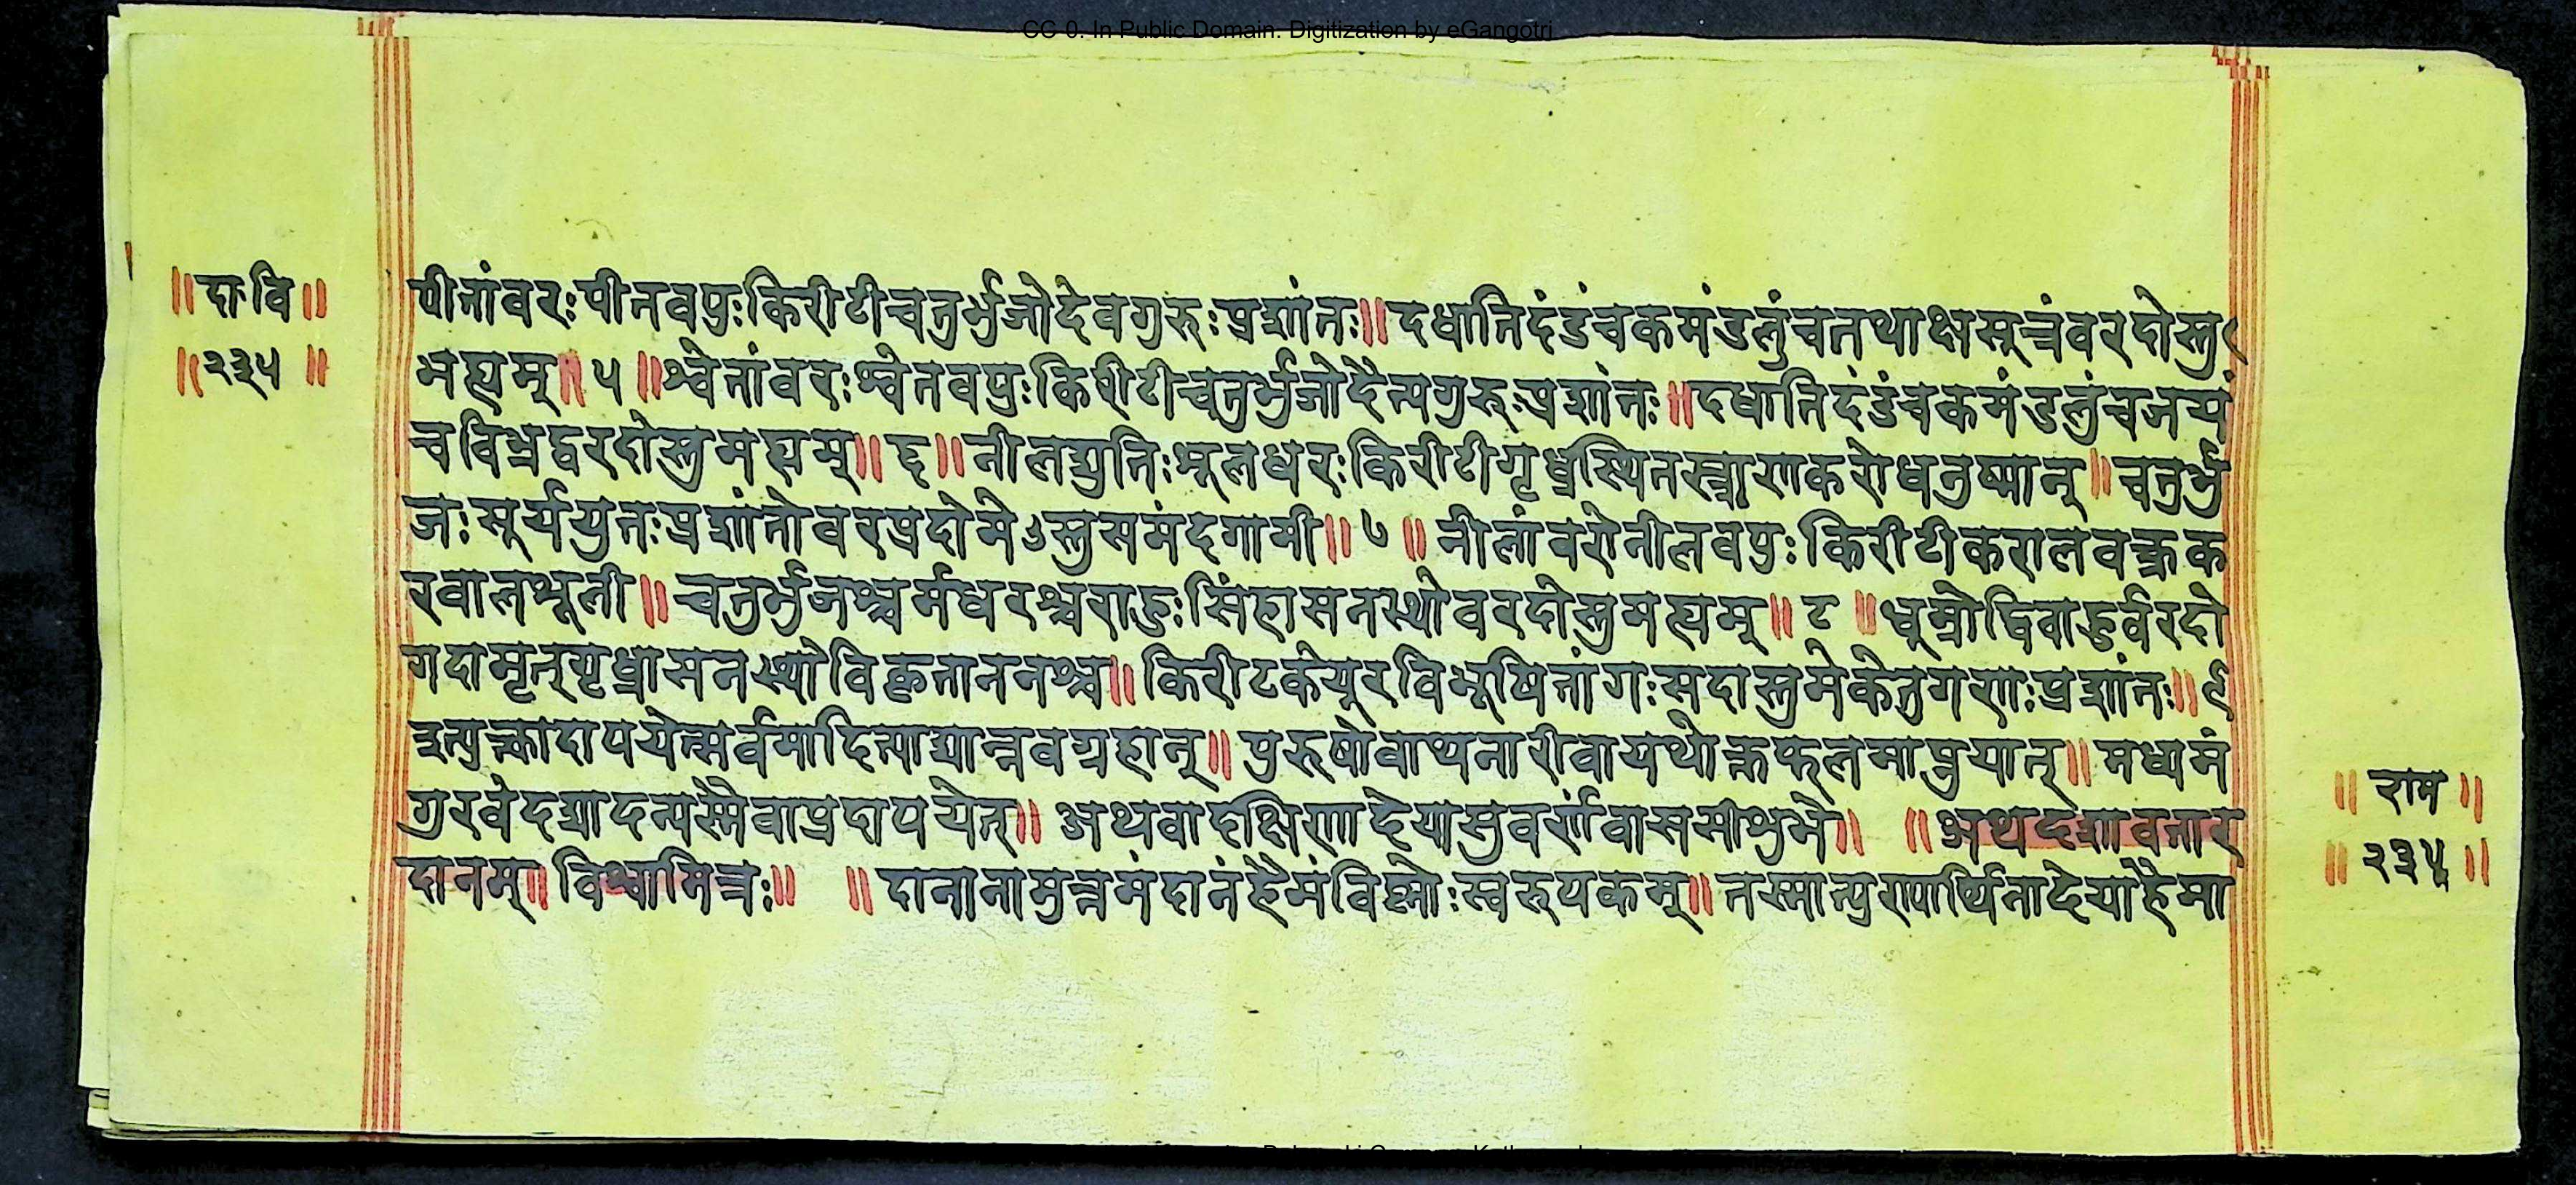 CC-0. In Public Domain. Digitization by eGangotri
॥दा॰वि॥
॥२३५॥
पीतांवरःपीतवपुःकिरीटीचतुर्भुजोदेवगुरुःप्रशांतः॥दधातिदंडंचकमंडलुंचतथाक्षसूत्रंवरदोस्तु
मह्यम्॥५॥श्वेतांवरःश्वेतवपुःकिरीटीचतुर्भुजोदैत्यगुरुःप्रशांतः॥दधातिदंडंचकमंडलुंचजयं
चविभ्रद्वरदोस्तुमह्यम्॥६॥नीलद्युतिःशूलधरःकिरीटीगृध्रस्थितस्त्राणकरोधनुष्मान्॥चतुर्भु
जःसूर्ययुतःप्रशांतोवरप्रदोमेऽस्तुसमंदगामी॥७॥नीलांवरोनीलवपुःकिरीटीकरालवक्त्रक
रवालशूली॥चतुर्भुजश्चर्मधरश्चराहुःसिंहासनस्थोवरदोस्तुमह्यम्॥८॥धूम्रोद्विवाहुर्वरदो
गदाभृत्गृध्रासनस्थोविकृताननश्च॥किरीटकेयूरविभूषितांगःसदास्तुमेकेतुगणःप्रशांतः॥९
इत्युक्त्वादापयेत्सर्वमादित्याद्यान्नवग्रहान्॥पुरुषोवाथनारीवायथोक्तफलमाप्नुयात्॥मध्यमं
गुरवेदद्यादन्यस्मैवाप्रदापयेत्॥अथवादक्षिणादेयासुवर्णंवाससीशुभे॥ ॥अथदशावतार
दानम्॥विश्वामित्रः॥ ॥दानानामुत्तमंदानंहैमंविष्णोःस्वरुपकम्॥तस्मात्पुरापार्थिनादेयाहैमा
॥राम॥
॥२३५॥